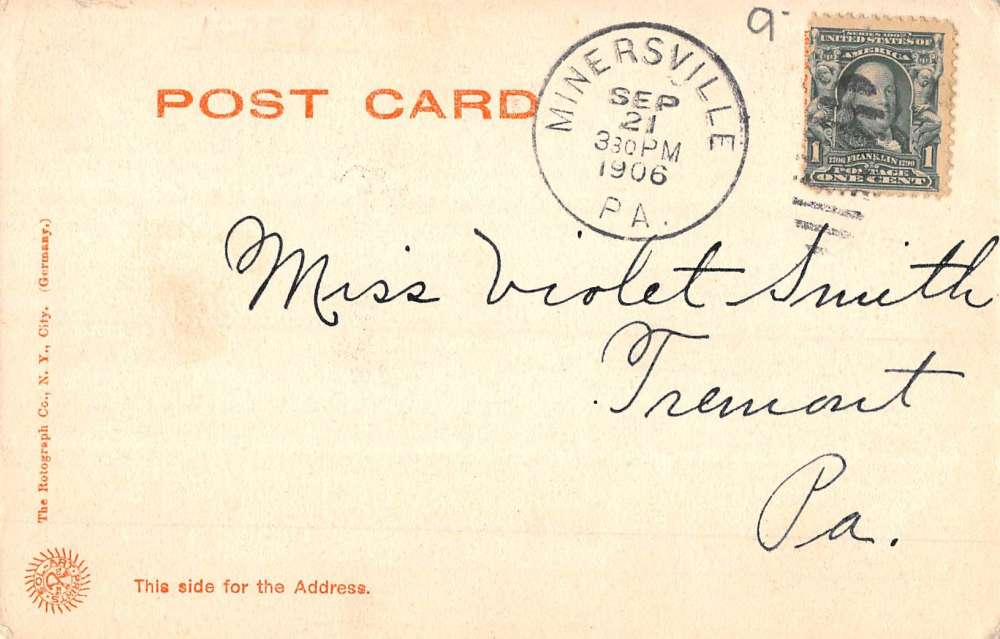 9-
SERIES 1902
UNITED STATES OF
AMERICA
1 1706 FRANKLIN 1790 1
POSTAGE
ONE CENT
MINERSVILLE
SEP
21
330PM
1906
PA.
POST CARD
Miss Violet Smith
Tremont
Pa.
The Rotograph Co., N. Y., City. (Germany.)
This side for the Address.